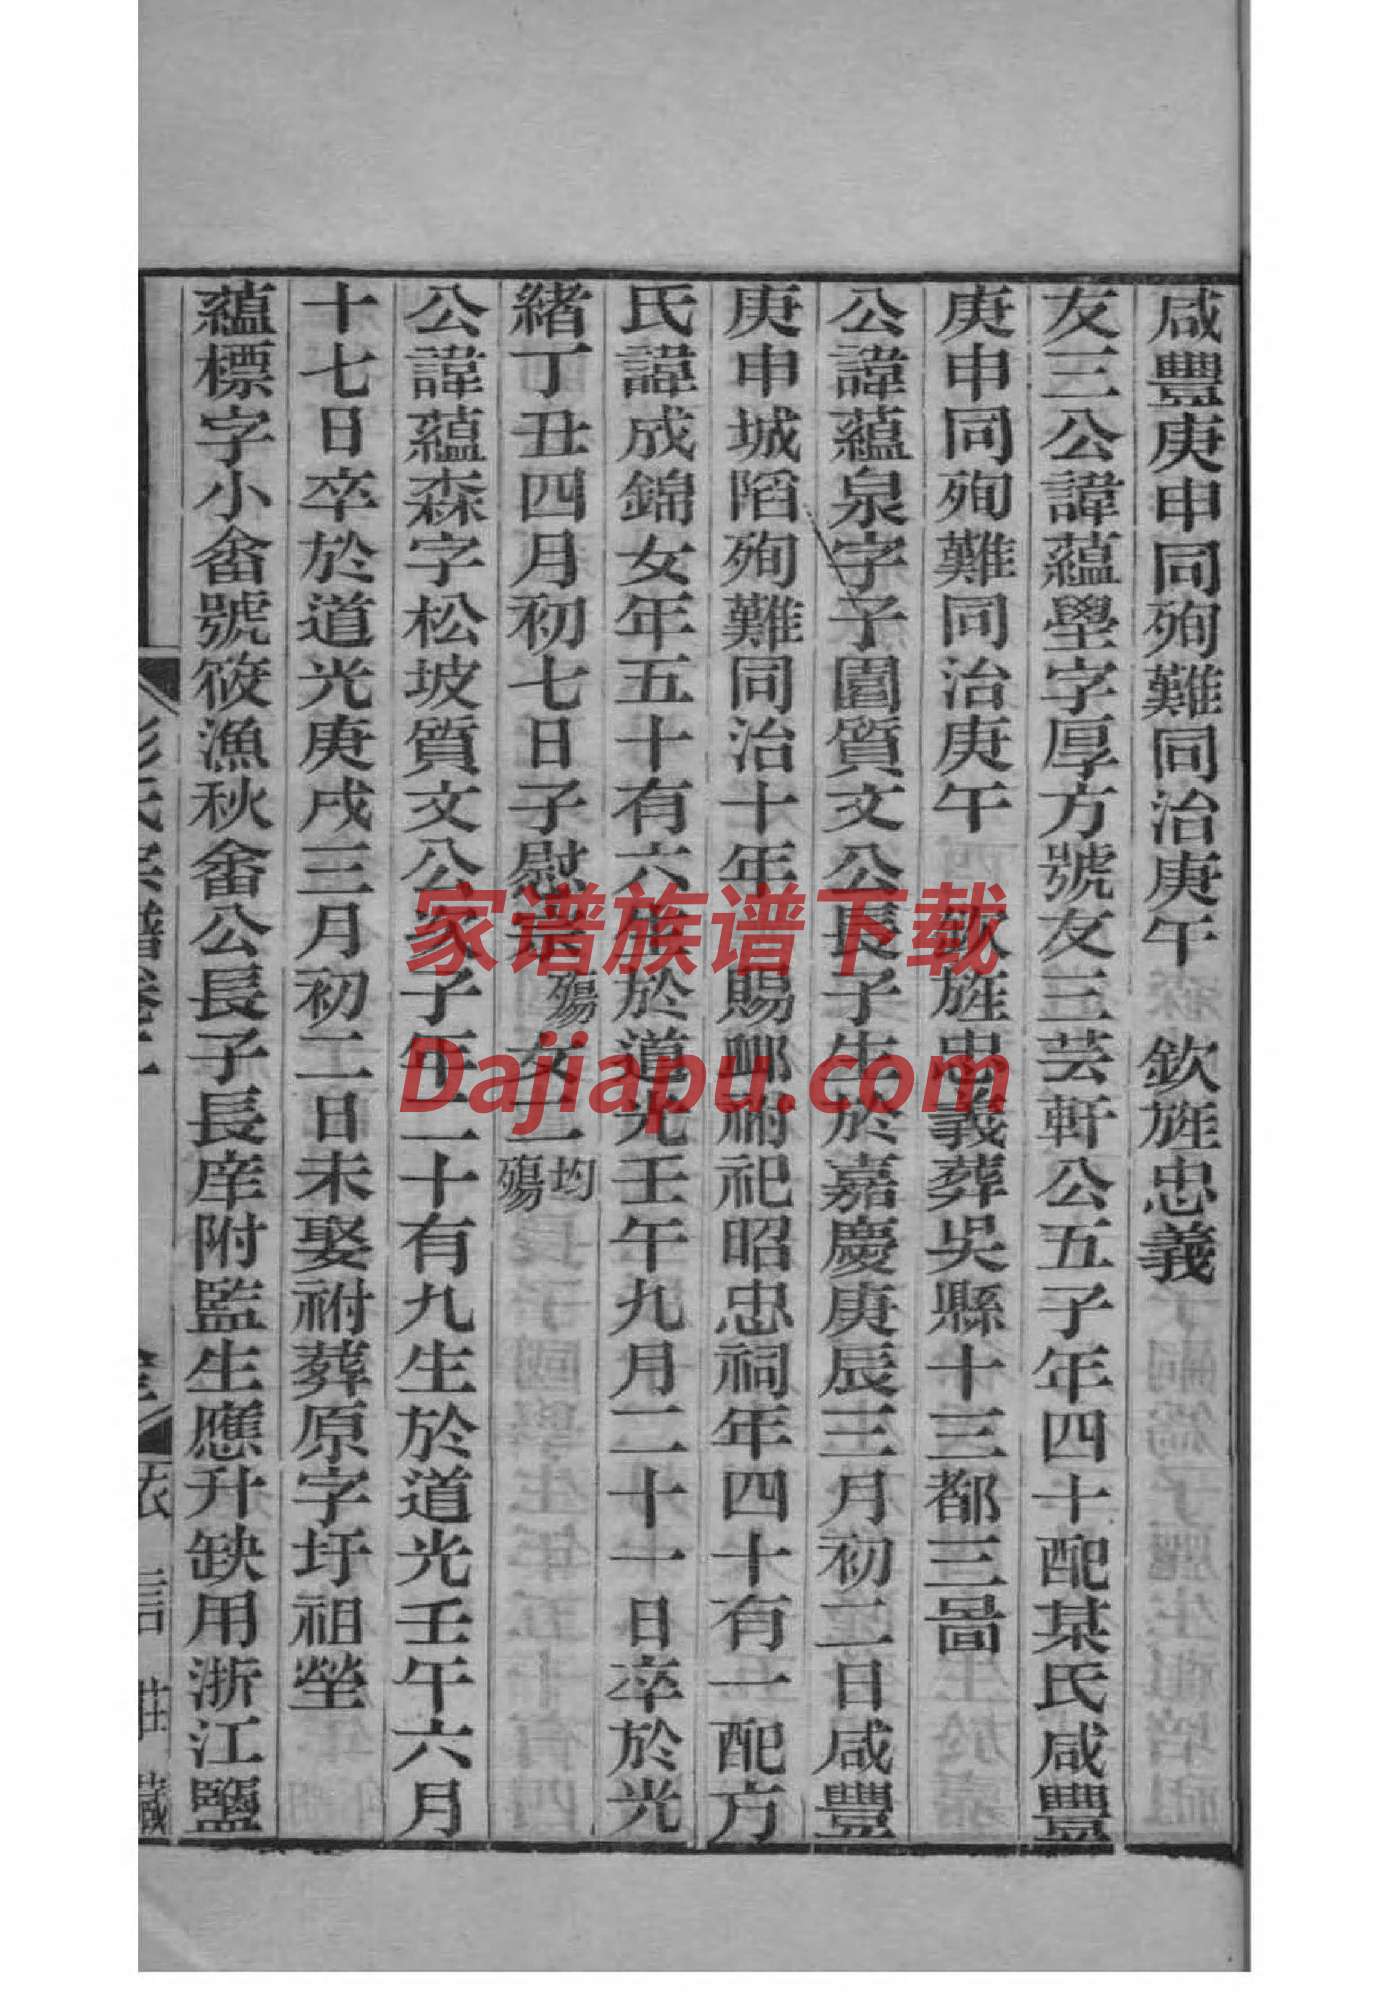 咸豐庚申同殉難同治庚午　欽旌忠義
友三公諱蘊壆字厚方號友三芸軒公五子年四十配某氏咸豐
庚申同殉難同治庚午　欽旌忠義葬吳縣十三都三啚
公諱蘊泉字子園質文公長子生於嘉慶庚辰三月初二日咸豐
庚申城陷殉難同治十年　賜卹祔祀昭忠祠年四十有一配方
氏諱成錦女年五十有六生於道光壬午九月二十一日卒於光
緒丁丑四月初七日子慰宗殤女二均殤
公諱蘊森字松坡質文公次子年二十有九生於道光壬午六月
十七日卒於道光庚戌三月初二日未娶祔葬原字圩祖塋
蘊標字小畬號筱漁秋畬公長子長庠附監生應升缺用浙江鹽
彭氏宗譜卷三
衣言莊藏
家谱族谱下载
Dajiapu.com